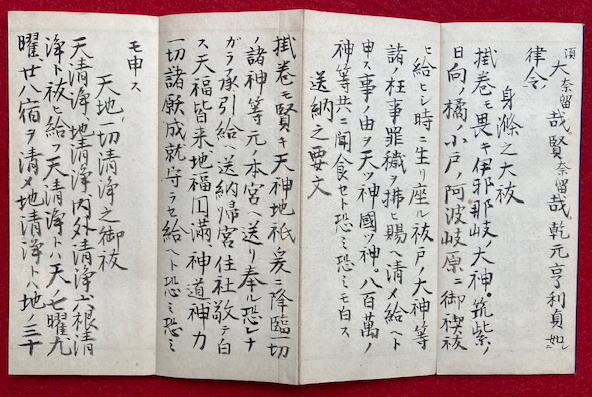 頂大奈留哉賢奈留哉、乾元亨利貞如
律令、
身滌之大祓
掛巻モ畏キ伊邪那岐ノ大神。筑紫ノ
日向ノ橘ノ小戸ノ阿波岐原ニ御禊祓
ヒ給ヒシ時ニ生リ座ル祓戸ノ大神等
諸ノ枉事罪穢ヲ拂ヒ賜ヘ清メ給ヘト
申ス事ノ由ヲ天ツ神國ツ神。八百萬ノ
神等共ニ聞食セト恐ミ恐ミモ白ス
送納之要文
掛巻モ賢キ天神地祇爰ニ降臨一切
ノ諸神等元ノ本宮ヘ送リ奉ル恐レナ
ガラ承引給ヘ送納帰宮住社敬テ白
ス天福皆来地福円満神道神力
一切諸願成就守ラセ給ヘト恐ミ恐ミ
モ申ス
天地一切清浄之御祓
天清浄、地清浄内外清浄六根清
浄ト祓ヒ給フ天清浄トハ天ノ七曜九
曜、廿八宿ヲ清メ地清浄トハ地ノ三十